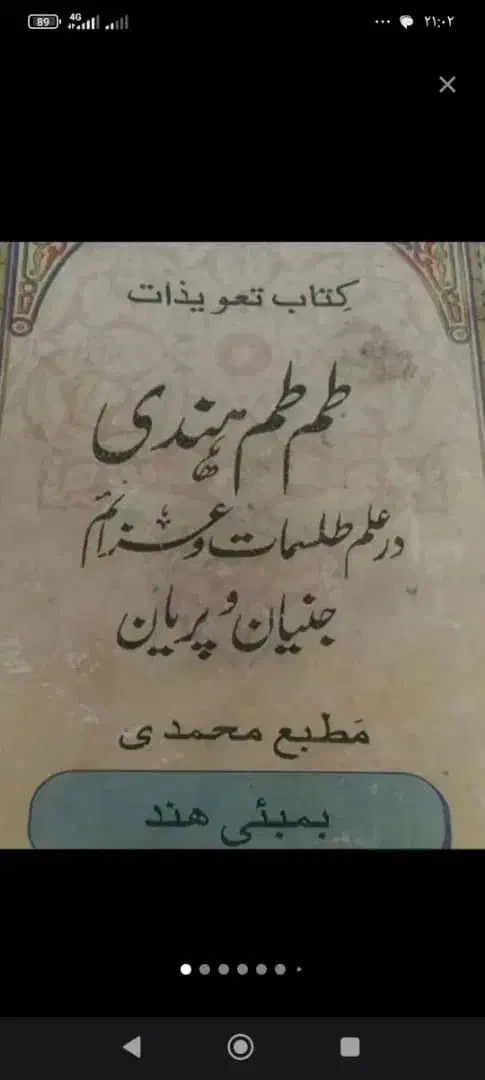 89 4G ۲۱:۰۲
کتاب تعویذات
طم طم هندی
در علم طلسمات و عزائم
جنیان و پریان
مطبع محمدی
بمبئی هند